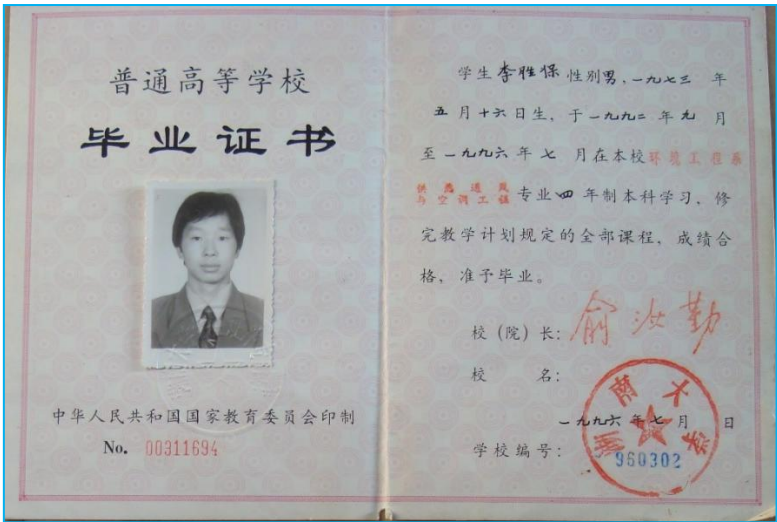 普通高等学校
毕业证书
中华人民共和国国家教育委员会印制
No. 00311694
学生李胜保性别男,一九七三年
五月十六日生,于一九九二年九月
至一九九六年七月在本校环境工程系
供热通风与空调工程专业四年制本科学习,修
完教学计划规定的全部课程,成绩合
格,准予毕业。
校(院)长:俞汝勤
校名:
湖南大学
一九九六年七月 日
学校编号:960302